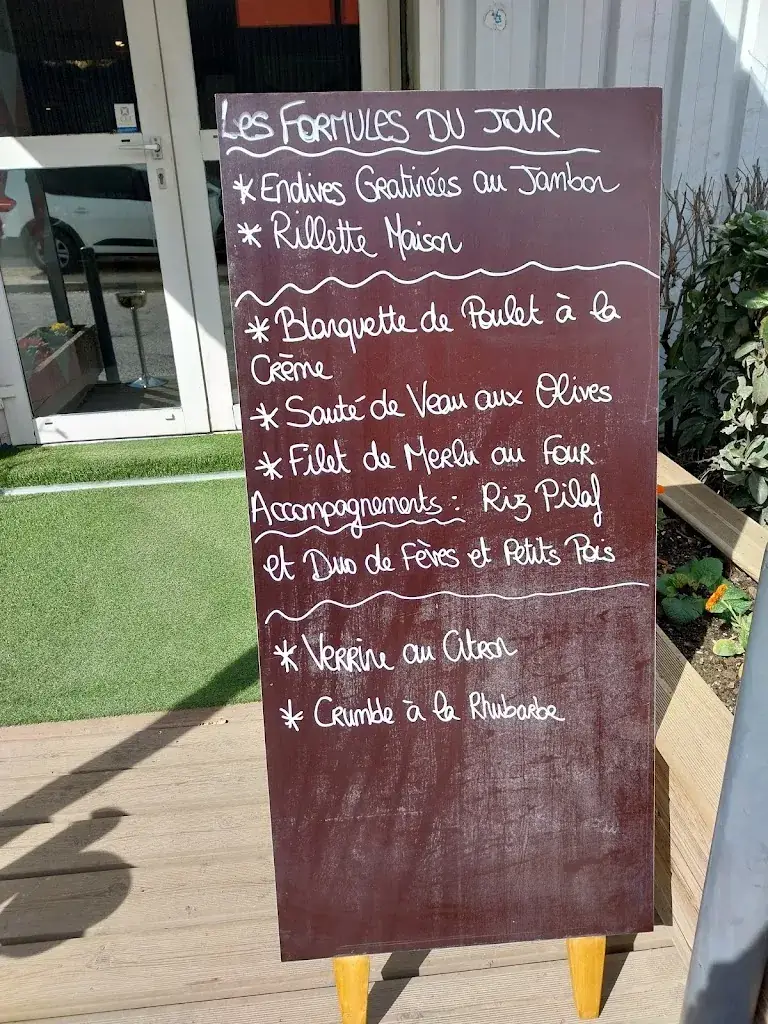 Les FORMULES DU JOUR
* Endives Gratinées au Jambon
* Rillette Maison
* Blanquette de Poulet à la
Crème
* Sauté de Veau aux Olives
* Filet de Merlu au Four
Accompagnements : Riz Pilaf
et Duo de Fèves et Petits Pois
* Verrine au Citron
* Crumble à la Rhubarbe